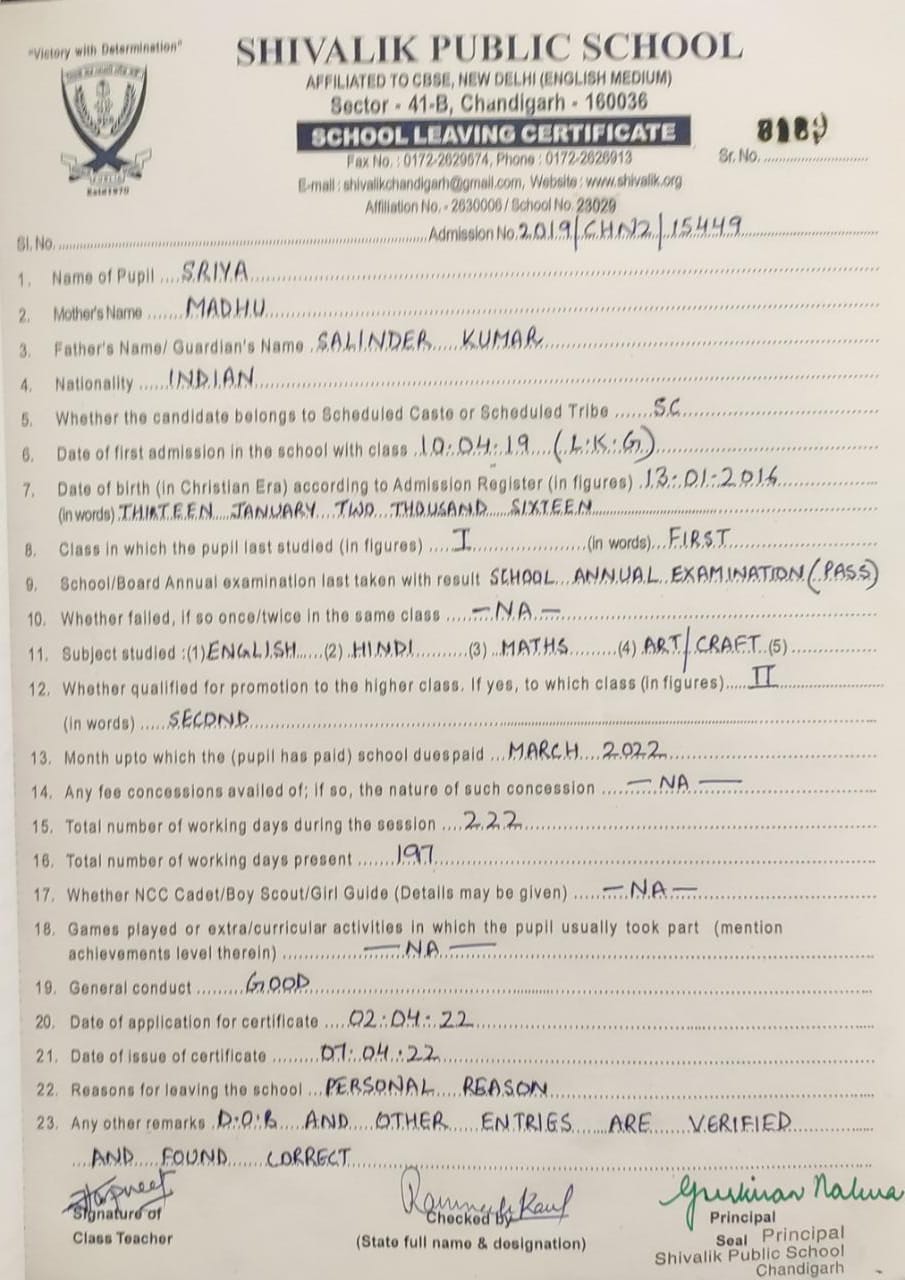 "Victory with Determination"
SHIVALIK PUBLIC SCHOOL
AFFILIATED TO CBSE, NEW DELHI (ENGLISH MEDIUM)
Sector - 41-B, Chandigarh - 160036
SCHOOL LEAVING CERTIFICATE
Fax No. : 0172-2629674, Phone : 0172-2626913
Sr. No. 8189
E-mail : shivalikchandigarh@gmail.com, Website : www.shivalik.org
Affiliation No. - 2630006 / School No. 23029
Estd 1970
Sl. No. Admission No. 2019/CHN2/15449
1. Name of Pupil SRIYA
2. Mother's Name MADHU
3. Father's Name/ Guardian's Name SALINDER KUMAR
4. Nationality INDIAN
5. Whether the candidate belongs to Scheduled Caste or Scheduled Tribe SC
6. Date of first admission in the school with class 10.04.19 (L.K.G)
7. Date of birth (in Christian Era) according to Admission Register (in figures) 13-01-2016
(in words) THIRTEEN JANUARY TWO THOUSAND SIXTEEN
8. Class in which the pupil last studied (in figures) I (in words) FIRST
9. School/Board Annual examination last taken with result SCHOOL ANNUAL EXAMINATION (PASS)
10. Whether failed, if so once/twice in the same class -NA-
11. Subject studied :(1) ENGLISH (2) HINDI (3) MATHS (4) ART/CRAFT (5)
12. Whether qualified for promotion to the higher class. If yes, to which class (in figures) II
(in words) SECOND
13. Month upto which the (pupil has paid) school duespaid MARCH 2022
14. Any fee concessions availed of; if so, the nature of such concession -NA-
15. Total number of working days during the session 222
16. Total number of working days present 197
17. Whether NCC Cadet/Boy Scout/Girl Guide (Details may be given) -NA-
18. Games played or extra/curricular activities in which the pupil usually took part (mention
achievements level therein) -NA-
19. General conduct GOOD
20. Date of application for certificate 02.04.22
21. Date of issue of certificate 07.04.22
22. Reasons for leaving the school PERSONAL REASON
23. Any other remarks D.O.B AND OTHER ENTRIES ARE VERIFIED
AND FOUND CORRECT
Signature of
Class Teacher
Checked by
(State full name & designation)
Principal
Seal Principal
Shivalik Public School
Chandigarh